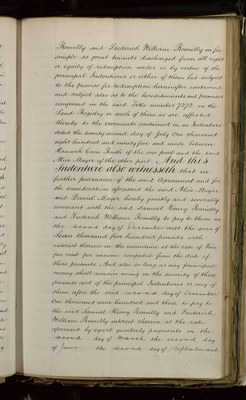 Romilly and Frederick William Romilly in fee
simple as joint tenants discharged from all right
or equity of redemption under or by virtue of the
principal Indentures or either of them but subject
to the proviso for redemption hereinafter contained
and subject also as to the hereditaments and premises
comprised in the said Title number 7272 in the
Land Registry or such of them as are affected
thereby to the covenants contained in an Indenture
dated the twenty second day of July One thousand
eight hundred and ninety five and made between
Hannah Smith of the one part and the said
Alice Mayer of the other part And this
Indenture also witnesseth that in
further pursuance of the said Agreement and for
the consideration aforesaid the said Alice Mayer
and Daniel Mayer hereby jointly and severally
covenant with the said Samuel Henry Romilly
and Frederick William Romilly to pay to them on
the second day of December next the sum of
Seven thousand five hundred pounds with
interest thereon in the meantime at the rate of Five
per cent per annum computed from the date of
these presents And also so long as any principal
money shall remain owing on the security of these
presents and of the principal Indentures or any of
them after the said second day of December
One thousand nine hundred and three to pay to
the said Samuel Henry Romilly and Frederick
William Romilly interest thereon at the rate
aforesaid by equal quarterly payments on the
second day of March the second day
of June the second day of September and